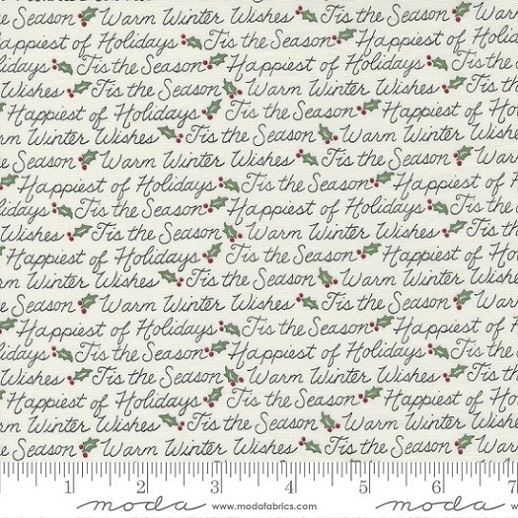 Tis the Season Warm
Happiest of Holidays Tis the Season Happiest of Holid
lidays Tis the Season Happiest of Holidays Tis the
Wishes Tis the Season Warm Winter Wishes Tis
Happiest of Holidays Tis the Season Happiest
rm Winter Wishes Tis the Season Warm Winter W
he Season Warm Winter Wishes Tis the Season Warm
Happiest of Holidays Tis the Season Happiest of H
lidays Tis the Season Happiest of Holidays Tis the
Wishes Tis the Season Warm Winter Wishes Tis
Happiest of Holidays Tis the Season Happiest of
rm Winter Wishes Tis the Season Warm Winter W
he Season Warm Winter Wishes Tis the Season Warm
Happiest of Holidays Tis the Season Happiest of
lidays Tis the Season Happiest of Holidays Tis the
Wishes Tis the Season Warm Winter Wishes Tis
Happiest of Holidays Tis the Season Happiest of
rm Winter Wishes Tis the Season Warm Winter W
he Season Warm Winter Wishes Tis the Season Warm
1 2 3 4 5 6 7
moda www.modafabrics.com moda